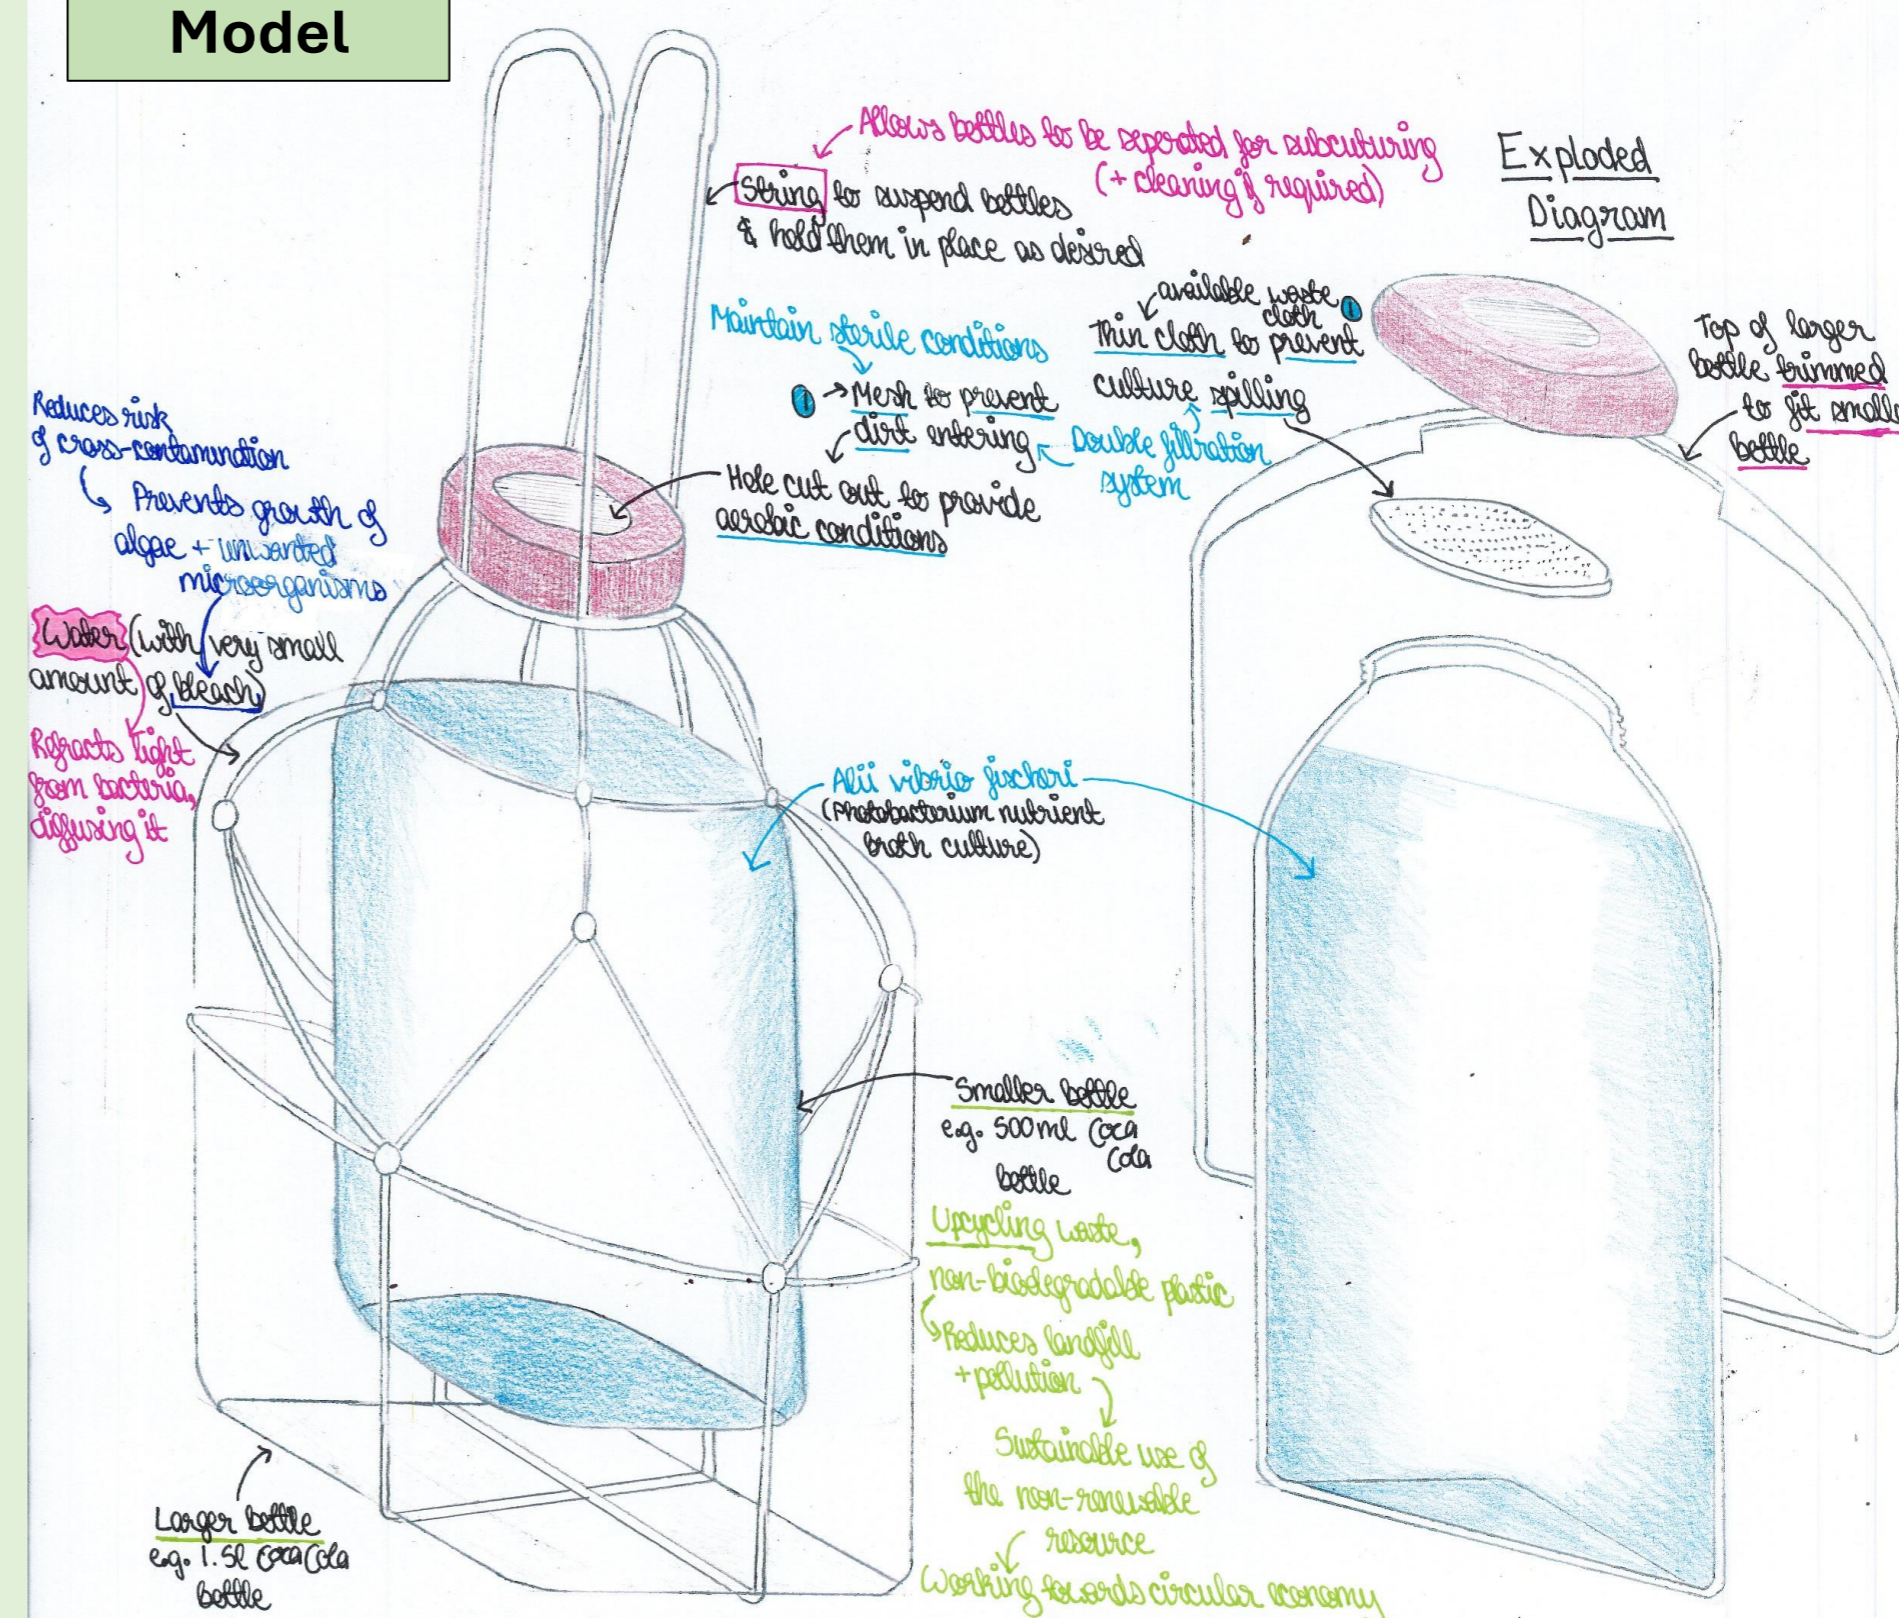 Model
Allows bottles to be seperated for subcuturing
(+ cleaning if required)
String to suspend bottles
& hold them in place as desired
Exploded
Diagram
available waste
cloth
1
Thin cloth to prevent
culture spilling
Maintain sterile conditions
1 → Mesh to prevent
dirt entering
Double filtration
system
Hole cut out to provide
aerobic conditions
Top of larger
bottle trimmed
to fit smalle
bottle
Reduces risk
of cross-contamination
Prevents growth of
algae + unwanted
microorganisms
Water (with very small
amount of bleach)
Refracts light
from bacteria,
diffusing it
Alii vibrio fischeri
(Photobacterium nutrient
broth culture)
Smaller bottle
e.g. 500ml Coca
Cola
bottle
Upcycling waste,
non-biodegradable plastic
Reduces landfill
+ pollution
Sustainable use of
the non-renewable
resource
Working towards circular economy
Larger bottle
e.g. 1.5l Coca Cola
bottle